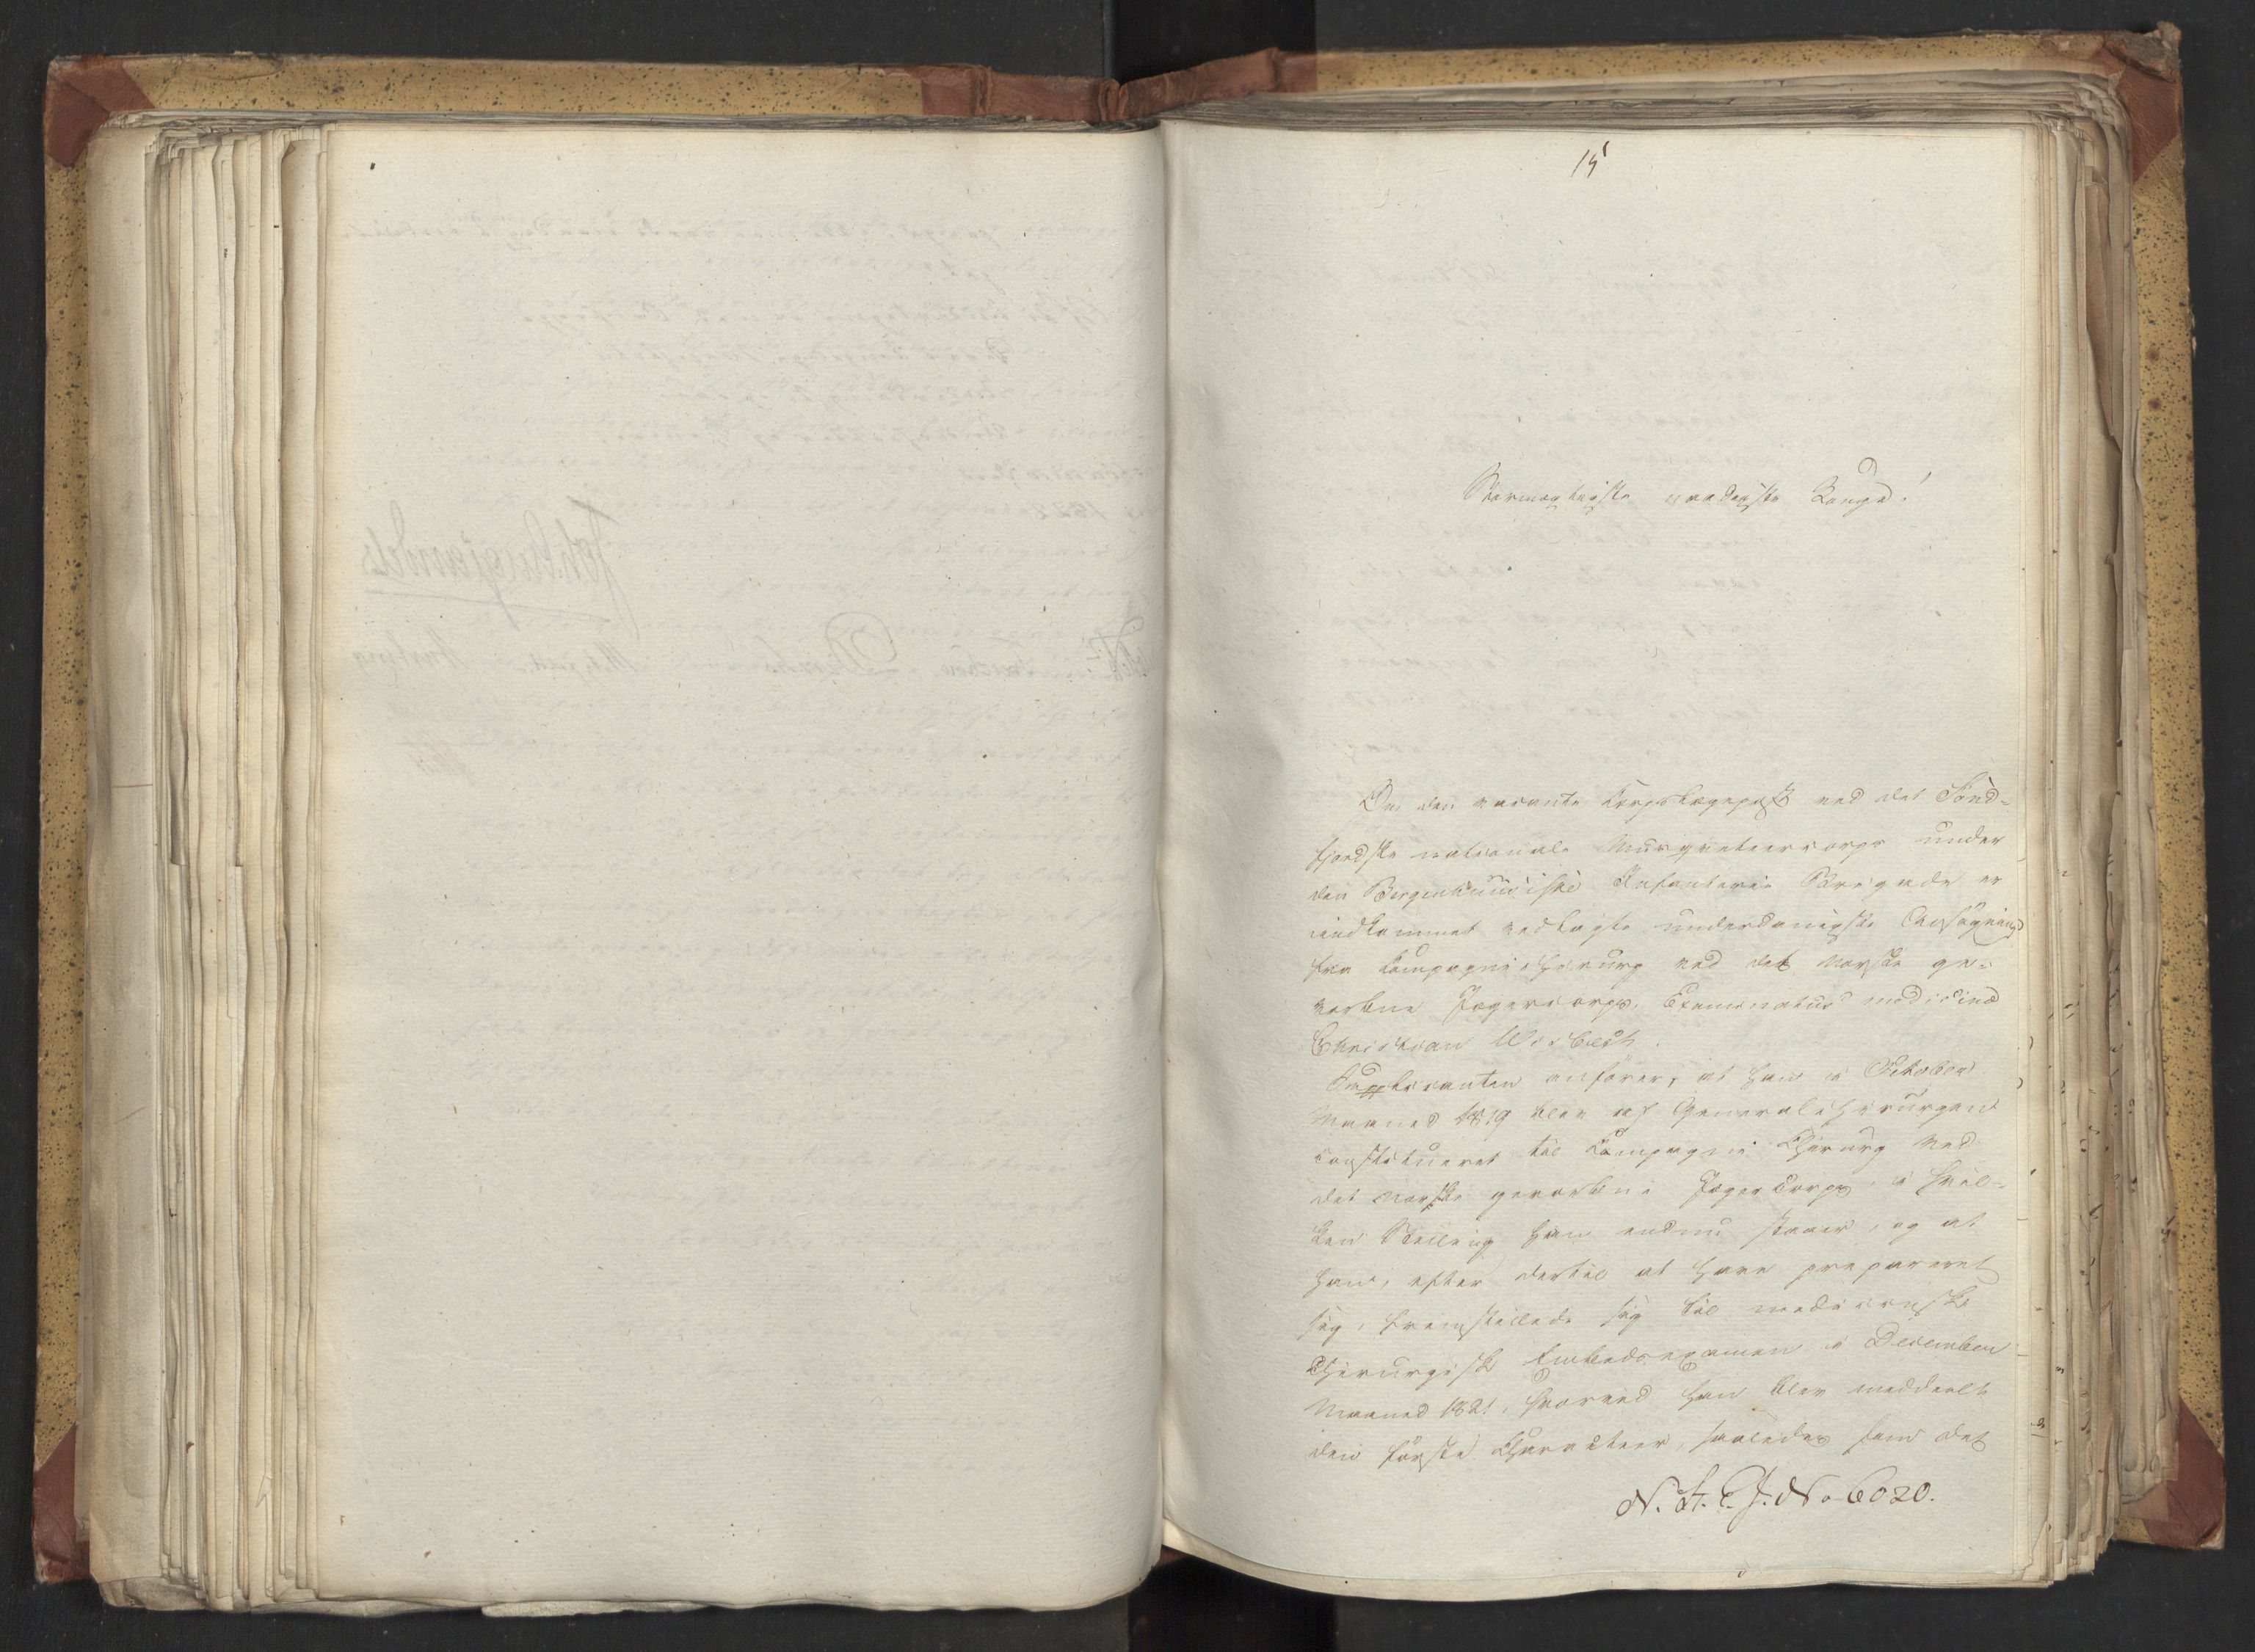 15
Stormægtigste naadigste Konge!
Om den vacante Corpslægepost ved det Sönd-
fjordske nationale Musqueteercorps under
den Bergenhuusiske Infanterie Brigade er
indkommet vedlagte underdanigste Ansøgning
fra Compagniechirurg ved det norske ge-
vorbne Jægercorps, Examinatus medicinæ
Christian Wisbech.
Supplicanten anfører, at han i October
Maaned 1819 blev af Generalchirurgen
constitueret til Compagnie Chirurg ved
det norske gevorbne Jægercorps, i hvil-
ken Stilling han endnu staaer, og at
han, efter dertil at have præpareret
sig, fremstillede sig til medicinsk
Chirurgisk Embedsexamen i December
Maaned 1821, hvorved han blev meddeelt
den første Characteer, saaledes som det
N. A. C. J. No 6020.